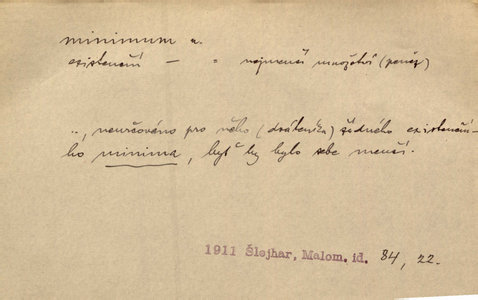 minimum n.
existenční — " nejmenší množství (peněz)
", neurčováno pro něho (dráteníka) žádného existenční-
ho minima, byť by bylo sebe menší.
1911 Šlejhar, Malom. id. 84, 22.